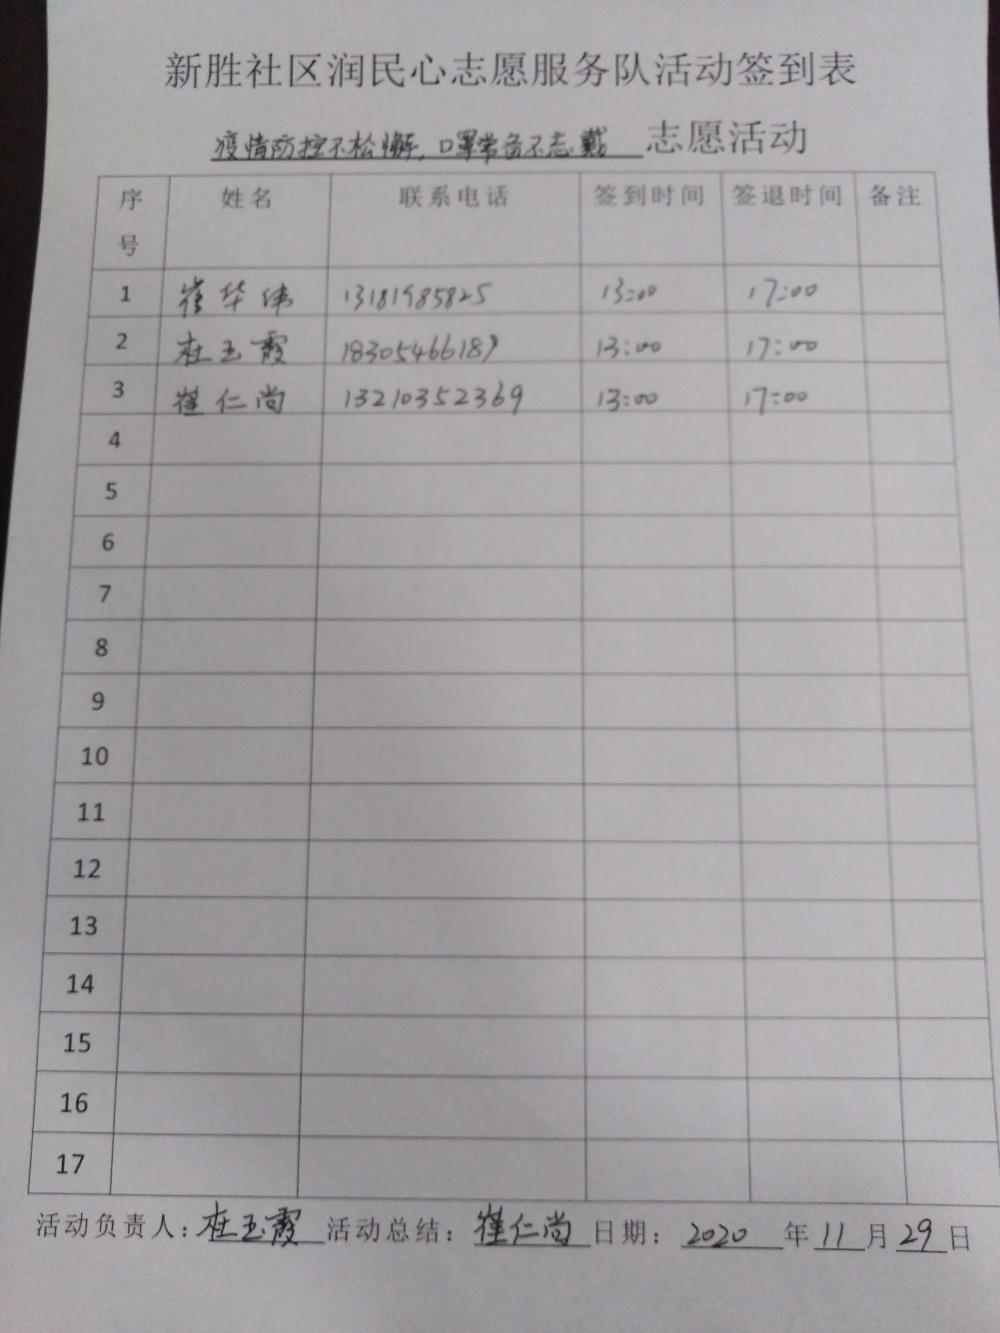 新胜社区润民心志愿服务队活动签到表
疫情防控不松懈，口罩常备不忘戴 志愿活动
序号 姓名 联系电话 签到时间 签退时间 备注
1 崔华伟 13181985825 13:00 17:00
2 杜玉霞 18305466189 13:00 17:00
3 崔仁尚 13210352369 13:00 17:00
4
5
6
7
8
9
10
11
12
13
14
15
16
17
活动负责人：杜玉霞 活动总结：崔仁尚 日期：2020年11月29日